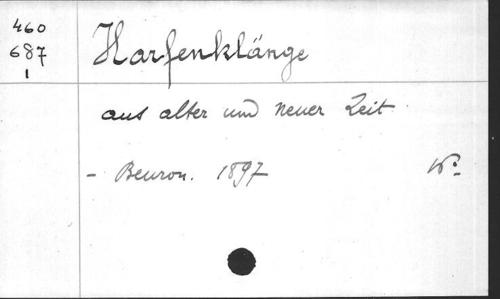 460
687
1
Harfenklänge
aus alter und neuer Zeit
- Beuron. 1897